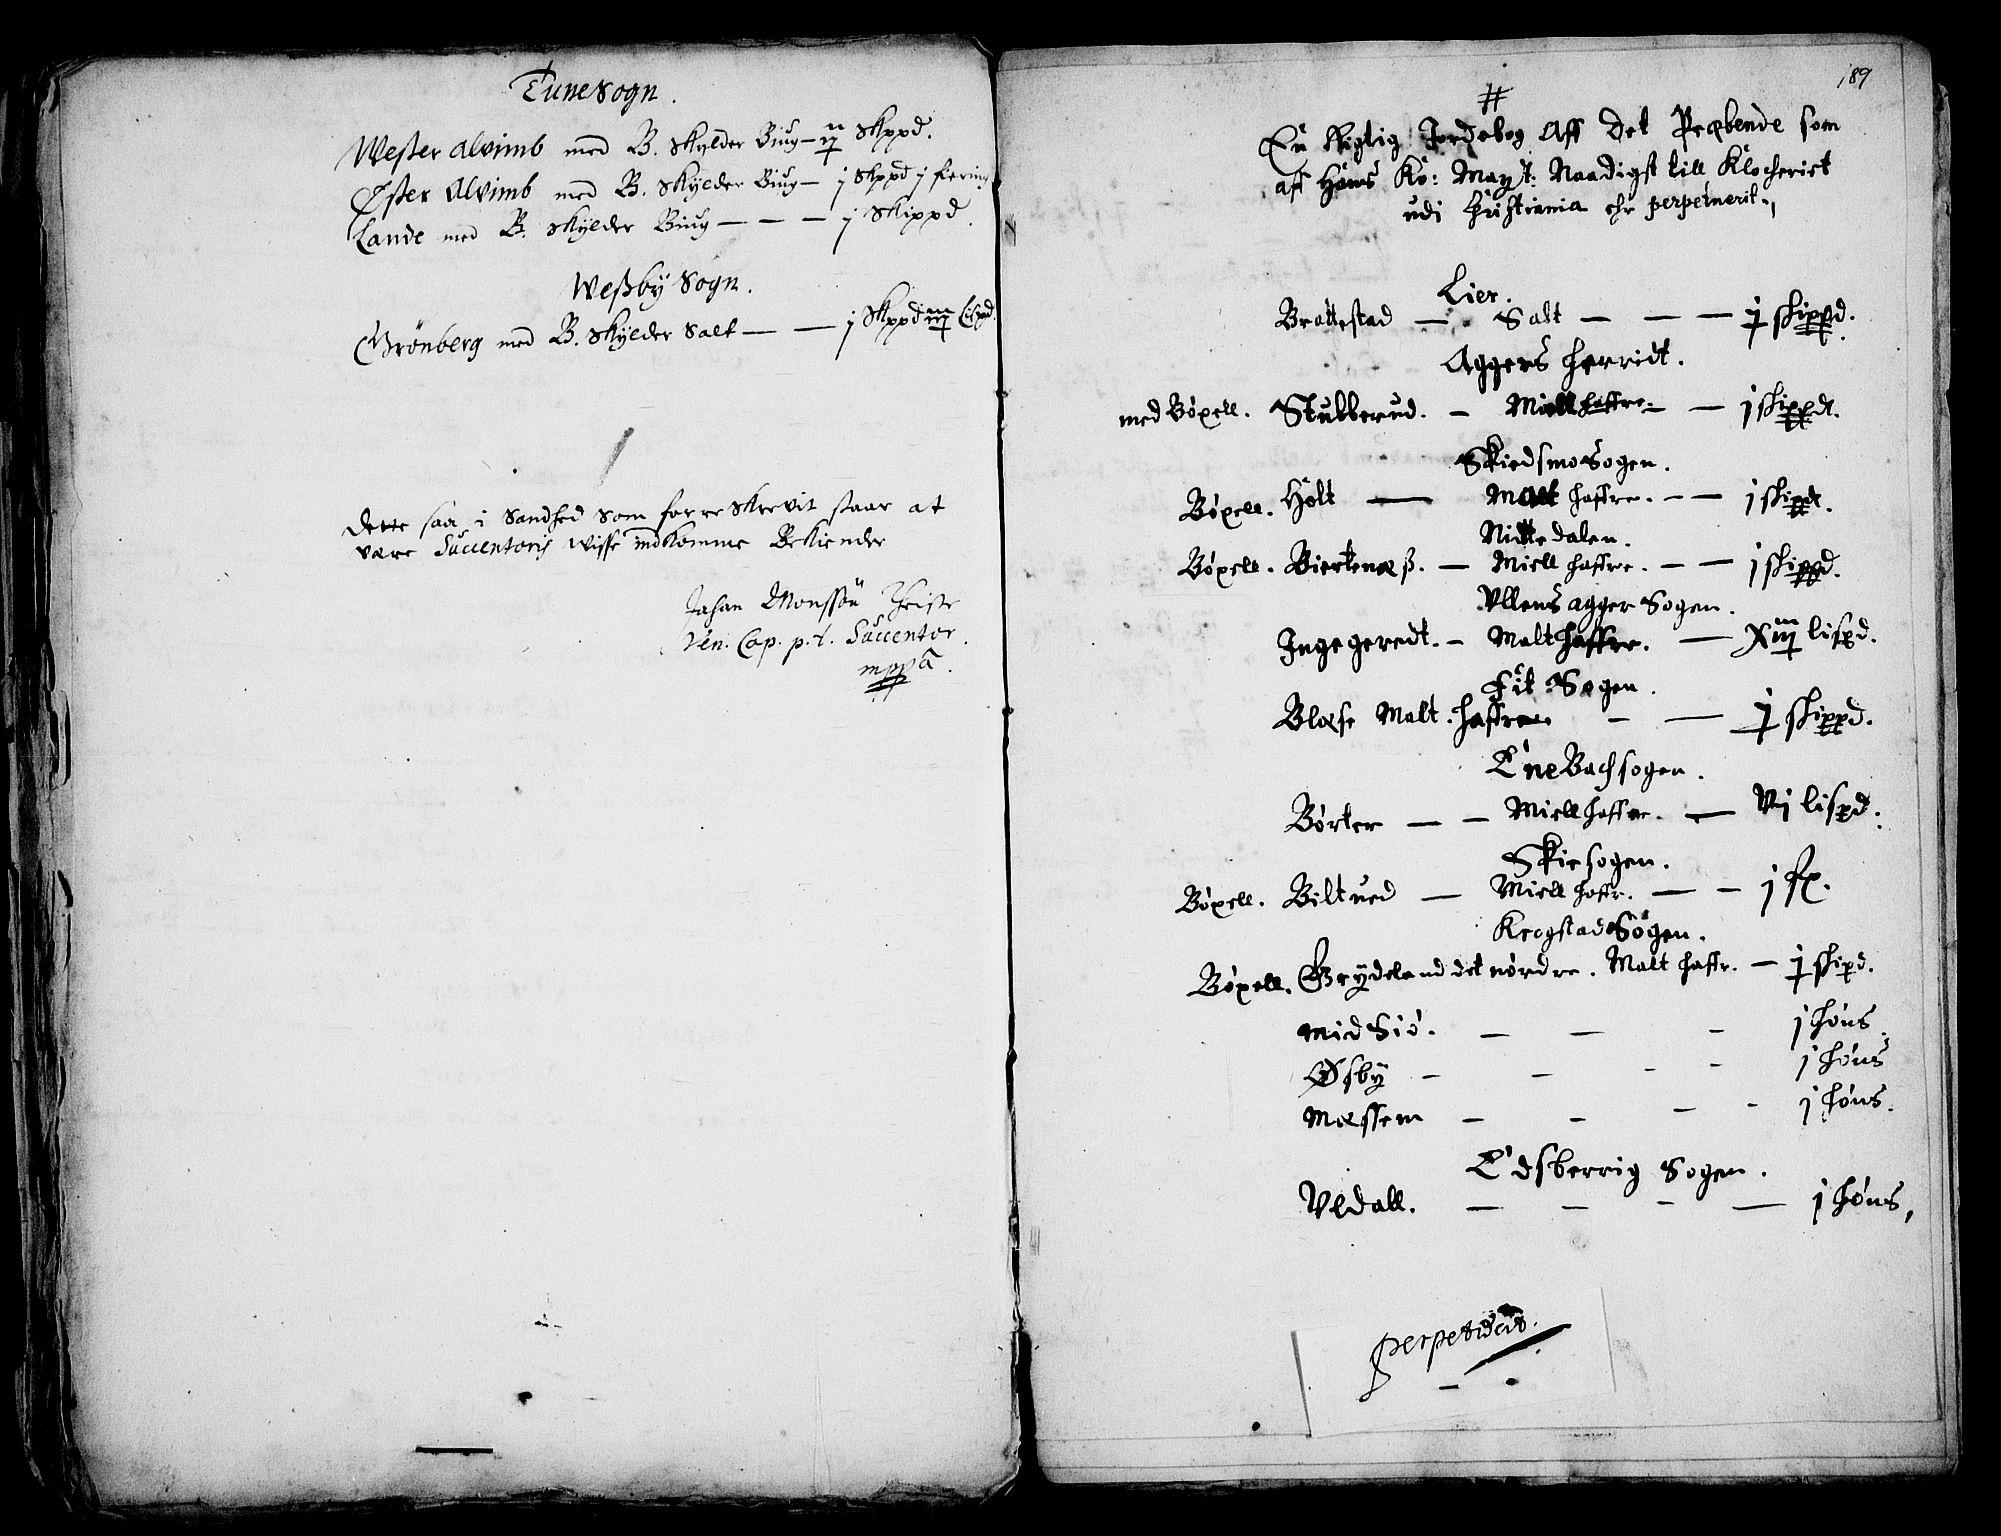 Tune Sogn.
Wester Alvimb med B. Skylder Biug — ij Skppd.
Øster Alvimb med B. Skylder Biug — j Skppd j fering
Lande med B. Skylder Biug — — — j Skippd.
Westby Sogn.
Grønberg med B. Skylder Salt — — j Skppd iij Lispd.
Dette saa i Sandhed som forre Skrevit staar at
være Succentoris wisse indkomme Bekiender
Johan Monssøn
Ven. Cap. p.t. Succentor.
mppa.
189
En Rigtig Jordebog Aff Det Præbende som
aff Hans Ko: Mayt: Naadigst till Klocheriet
udi Christiania ehr perpetuerit.
Lier.
Brottestad — Salt — — — j skippd.
Aggers Herridt.
med Bøxell. Stubberud. — Miell haffre. — — j skippdt.
Skiedsmo Sogen.
Bøxell. Holt — Malt haffre. — — j skipdt.
Nittedalen.
Bøxell. Bierkenæs. — Miell haffre. — — j skippd.
Ullensagger Sogen.
Ingegeredt. — Malt haffre. — Xiij lispd.
Fit Sogen.
Blæse Malt. haffre — — j skippd.
Enebach sogen.
Børter — — Miell haffre. — Vj lispd.
Skie sogen.
Bøxell. Biltued — Miell haffr. — — j fx.
Krogstad Sogen.
Bøxell. Grydeland det nordre. Malt haffr. — j skipd.
Mid Siø. — — — j høns.
Øsby — — — — j høns
Mæssem — — — — j høns.
Edsberrig Sogen.
Uldall. — — — — j høns,
perpetuat.